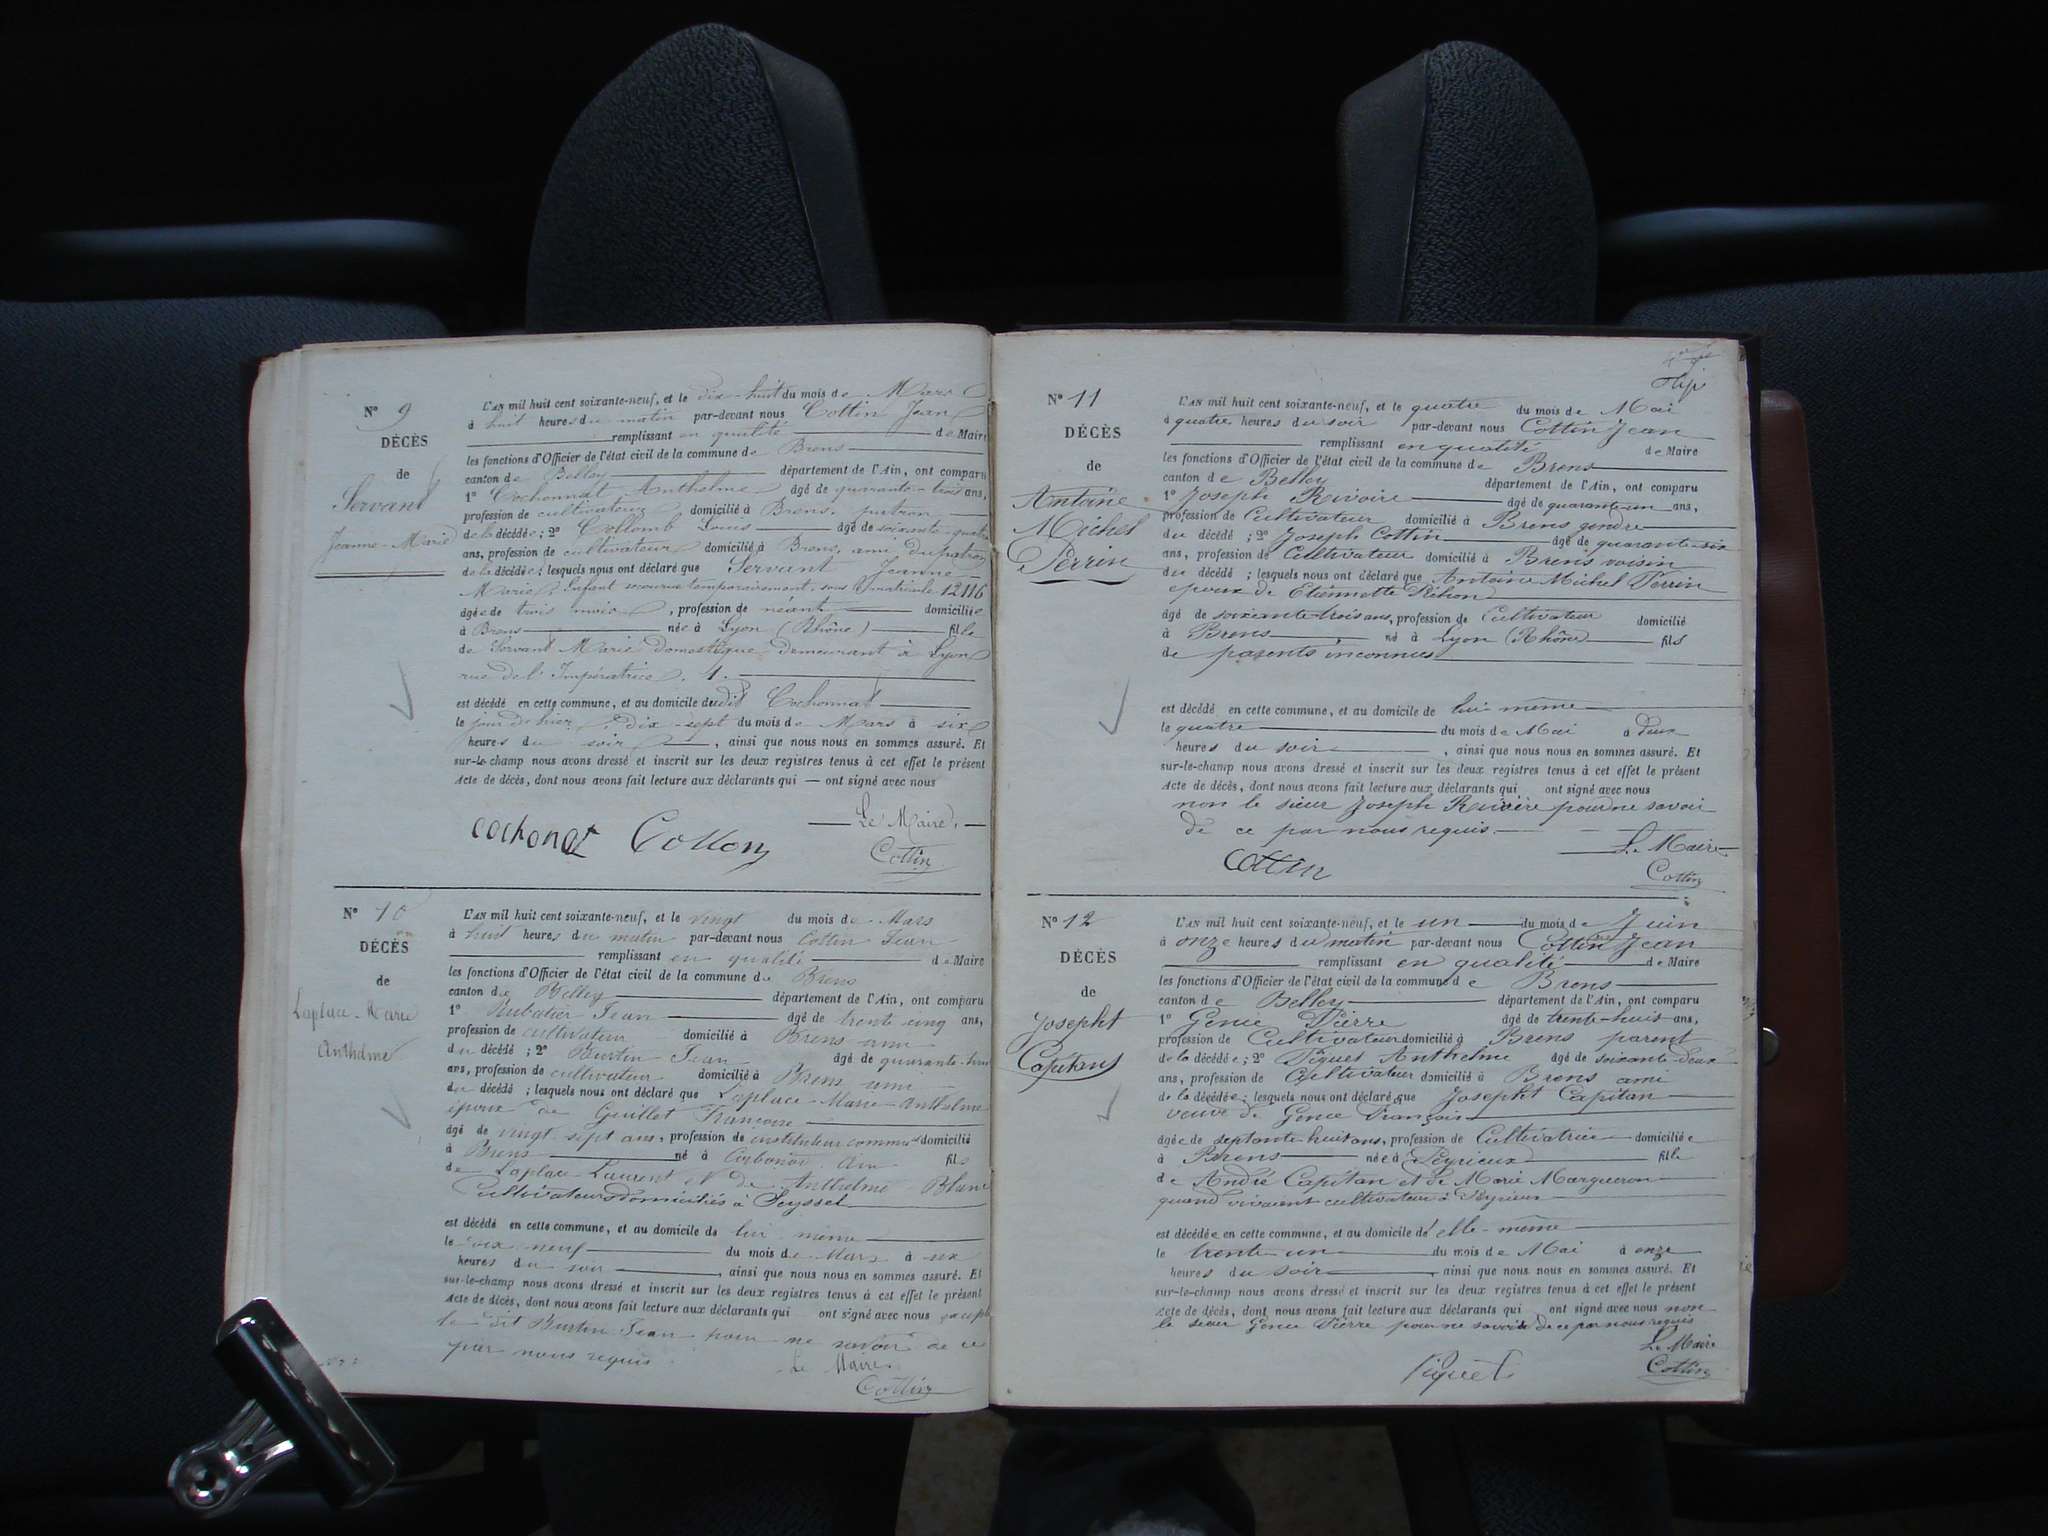 N° 9
DÉCÈS
de
Servant
Jeanne-Marie
L'AN mil huit cent soixante-neuf, et le dix-huit du mois de Mars
à huit heures du matin par-devant nous Cottin Jean
remplissant en qualité de Maire
les fonctions d'Officier de l'état civil de la commune de Brens
canton de Belley département de l'Ain, ont comparu
1° Cochonnat Anthelme âgé de quarante-trois ans,
profession de cultivateur domicilié à Brens, patron
de la décédée ; 2° Collomb Louis âgé de soixante-quatre
ans, profession de cultivateur domicilié à Brens, ami du patron
de la décédée ; lesquels nous ont déclaré que Servant Jeanne
Marie, Enfant secourue temporairement, sous Matricule 12116
âgée de trois mois, profession de néant domiciliée
à Brens née à Lyon (Rhône) fille
de Servant Marie domestique demeurant à Lyon
rue de l'Impératrice. 1.
est décédé en cette commune, et au domicile dudit Cochonnat
le jour de hier, dix-sept du mois de Mars à six
heures du soir, ainsi que nous nous en sommes assuré. Et
sur-le-champ nous avons dressé et inscrit sur les deux registres tenus à cet effet le présent
Acte de décès, dont nous avons fait lecture aux déclarants qui — ont signé avec nous
Le Maire.
cochonat
Cottin
N° 10
DÉCÈS
de
Laplace-Marie
Anthelme
L'AN mil huit cent soixante-neuf, et le vingt du mois de Mars
à huit heures du matin par-devant nous Cottin Jean
remplissant en qualité de Maire
les fonctions d'Officier de l'état civil de la commune de Brens
canton de Belley département de l'Ain, ont comparu
1° Rubatier Jean âgé de trente cinq ans,
profession de cultivateur domicilié à Brens ami
du décédé ; 2° Burtin Jean âgé de quarante-
ans, profession de cultivateur domicilié à Brens ami
du décédé ; lesquels nous ont déclaré que Laplace-Marie-Anthelme
époux de Guillet Françoise
âgé de vingt-sept ans, profession de instituteur communal domicilié
à Brens né à Corbonod Ain fils
de Laplace Laurent et de Anthelme Blanc
Cultivateurs domiciliés à Seyssel
est décédé en cette commune, et au domicile de lui-même
le dix neuf du mois de Mars à six
heures du soir, ainsi que nous nous en sommes assuré. Et
sur-le-champ nous avons dressé et inscrit sur les deux registres tenus à cet effet le présent
Acte de décès, dont nous avons fait lecture aux déclarants qui ont signé avec nous excepté
le dit Burtin Jean pour ne savoir de ce
par nous requis.
Le Maire.
Cottin
N° 11
DÉCÈS
de
Antoine
Michel
Perrin
L'AN mil huit cent soixante-neuf, et le quatre du mois de Mai
à quatre heures du soir par-devant nous Cottin Jean
remplissant en qualité de Maire
les fonctions d'Officier de l'état civil de la commune de Brens
canton de Belley département de l'Ain, ont comparu
1° Joseph Rivoire âgé de quarante-un ans,
profession de Cultivateur domicilié à Brens gendre
du décédé ; 2° Joseph Cottin âgé de quarante-six
ans, profession de Cultivateur domicilié à Brens voisin
du décédé ; lesquels nous ont déclaré que Antoine Michel Perrin
époux de Etiennette
âgé de soixante-trois ans, profession de Cultivateur domicilié
à Brens, né à Lyon (Rhône) fils
de parents inconnus
est décédé en cette commune, et au domicile de lui-même
le quatre du mois de Mai à deux
heures du soir, ainsi que nous nous en sommes assuré. Et
sur-le-champ nous avons dressé et inscrit sur les deux registres tenus à cet effet le présent
Acte de décès, dont nous avons fait lecture aux déclarants qui ont signé avec nous
non le sieur Joseph Rivoire pour ne savoir
de ce par nous requis.
Le Maire
Cottin
Cottin
N° 12
DÉCÈS
de
Josepht
Capitan
L'AN mil huit cent soixante-neuf, et le un du mois de Juin
à onze heures du matin par-devant nous Cottin Jean
remplissant en qualité de Maire
les fonctions d'Officier de l'état civil de la commune de Brens
canton de Belley département de l'Ain, ont comparu
1° Genie Pierre âgé de trente-huit ans,
profession de Cultivateur domicilié à Brens parent
de la décédée ; 2° Piquet Anthelme âgé de soixante-deux
ans, profession de Cultivateur domicilié à Brens ami
de la décédée ; lesquels nous ont déclaré que Josepht Capitan
veuve de Genie François
âgée de septante-huit ans, profession de Cultivatrice domiciliée
à Brens née à Peyrieux fille
de André Capitan et de Marie Margueron
quand vivaient cultivateur à Peyrieux
est décédée en cette commune, et au domicile d'elle-même
le trente-un du mois de Mai à onze
heures du soir, ainsi que nous nous en sommes assuré. Et
sur-le-champ nous avons dressé et inscrit sur les deux registres tenus à cet effet le présent
Acte de décès, dont nous avons fait lecture aux déclarants qui ont signé avec nous non
le sieur Genie Pierre pour ne savoir de ce par nous requis
Le Maire
Piquet
Cottin